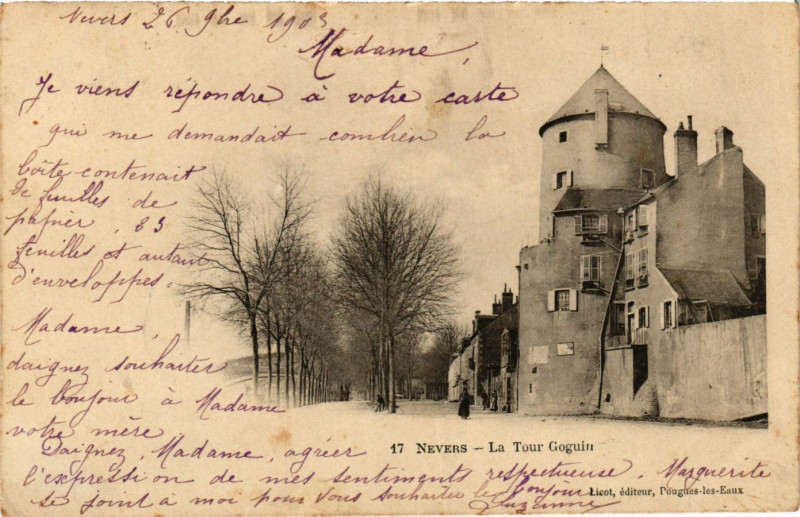 Nevers 26 9bre 1903
Madame,
Je viens répondre à votre carte
qui me demandait combien la
boîte contenait
de feuilles de
papier, 83
feuilles et autant
d'enveloppes.
Madame,
daignez souhaiter
le bonjour à Madame
votre mère.
Daignez, Madame, agréer
l'expression de mes sentiments respectueuse. Marguerite
se joint à moi pour vous souhaiter le bonjour
Suzanne
17 NEVERS – La Tour Goguin
Licot, éditeur, Pougues-les-Eaux